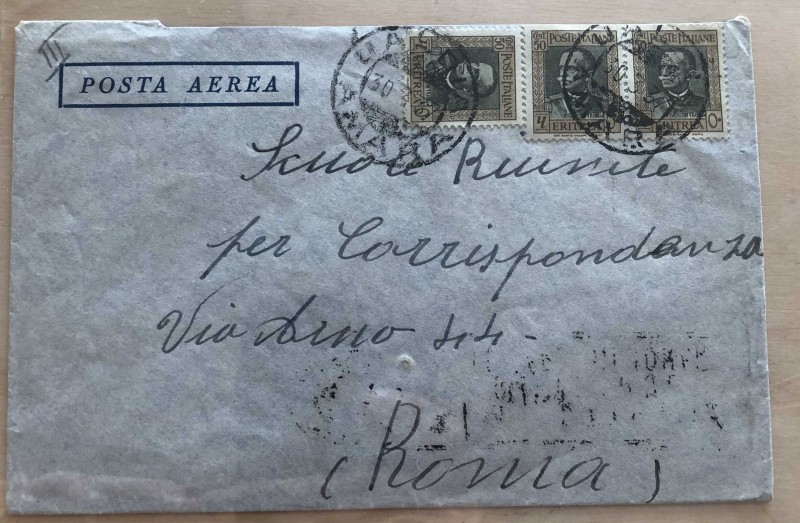 III
POSTA AEREA
POSTE ITALIANE
50
ERITREA
POSTE ITALIANE
50
ERITREA
POSTE ITALIANE
50
ERITREA
30
Scuole Riunite
per Corrispondenza
Via Arno 44-
(Roma)